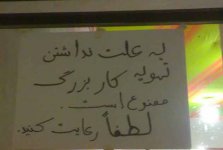 به علت نداشتن
تهویه کار بزرگ
ممنوع است.
لطفاً رعایت کنید.